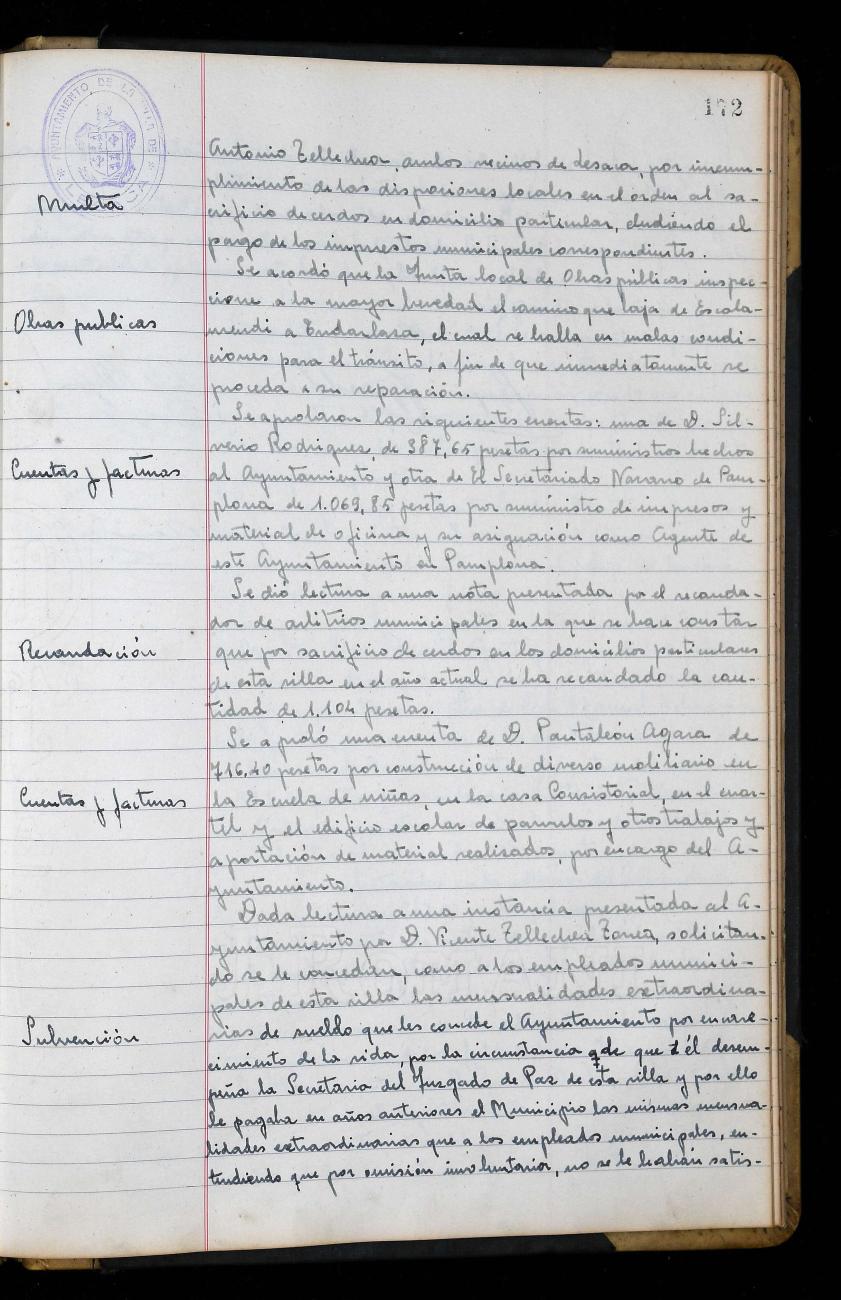 172
AYUNTAMIENTO DE LA VILLA DE
Antonio Tellechea, ambos vecinos de Lesaca, por incum-
plimiento de las disposiciones locales en el orden al sa-
Multa
crificio de cerdos en domicilio particular, eludiendo el
pargo de los impuestos municipales correspondientes.
Se acordó que la Junta local de Obras públicas inspec-
cione a la mayor brevedad el camino que baja de Escola-
Obras publicas
mendi a Endarlaza, el cual se halla en malas condi-
ciones para el tránsito, a fin de que inmediatamente se
proceda a su reparación.
Se aprobaron las siguientes cuentas: una de D. Sil-
verio Rodriguez, de 387,65 pesetas por suministros hechos
Cuentas y facturas
al Ayuntamiento y otra de El Secretariado Navarro de Pam-
plona de 1.069,85 pesetas por suministro de impresos y
material de oficina y su asignación como Agente de
este Ayuntamiento en Pamplona.
Se dió lectura a una nota presentada por el recauda-
dor de arbitrios municipales en la que se hace constar
Recaudación
que por sacrificio de cerdos en los domicilios particulares
de esta villa en el año actual se ha recaudado la can-
tidad de 1.104 pesetas.
Se aprobó una cuenta de D. Pantaleón Agara de
716,40 pesetas por construcción de diverso mobiliario en
Cuentas y facturas
la Escuela de niñas, en la casa Consistorial, en el cuar-
tel y el edificio escolar de parvulos y otros trabajos y
aportación de material realizados, por encargo del A-
yuntamiento.
Dada lectura a una instancia presentada al A-
yuntamiento por D. Vicente Tellechea Zonea, solicitan-
do se le concedan, como a los empleados munici-
pales de esta villa las mensualidades extraordina-
Subvención
rias de sueldo que les concede el Ayuntamiento por encare-
cimiento de la vida, por la circunstancia de que él desem-
peña la Secretaria del Juzgado de Paz de esta villa y por ello
le pagaba en años anteriores el Municipio las mismas mensua-
lidades extraordinarias que a los empleados municipales, en-
tendiendo que por omisión involuntaria, no se le habían satis-